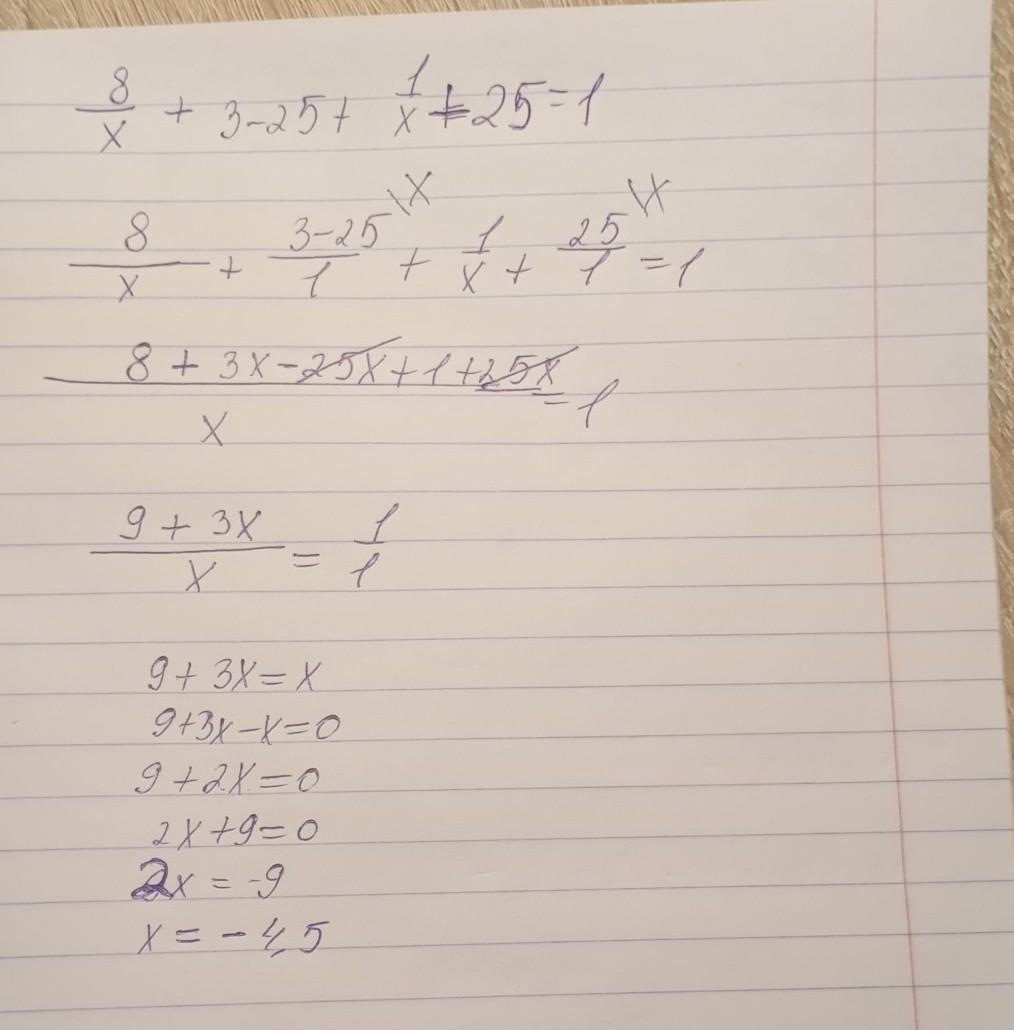 8/x + 3-25+ 1/x + 25=1
8/x + 3-25/1 \x + 1/x + 25/1 \x =1
8 + 3x-25x+1+25x/x =1
9 + 3x/x = 1/1
9+ 3x=x
9+3x-x=0
9+2x=0
2x+9=0
2x = -9
x = - 4,5